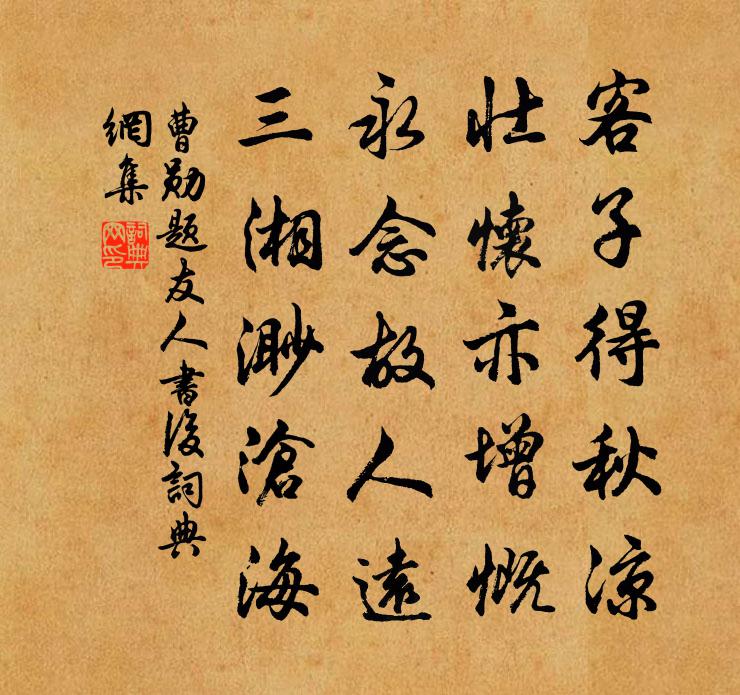 客子得秋涼
壯懷亦增慨
永念故人遠
三湘渺滄海
曹勛題友人書後詞典
網集
詞典
網印